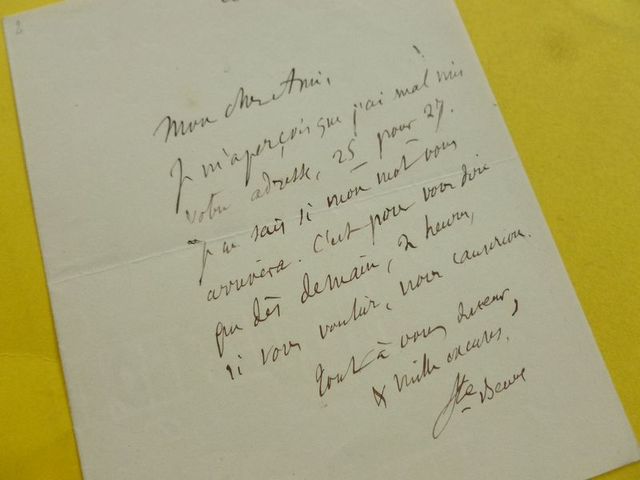 2
Mon cher Ami,
Je m'aperçois que j'ai mal mis
votre adresse, 25 pour 27.
Je ne sais si mon mot vous
arrivera. C'est pour vous dire
que dès demain, 2 heures,
si vous voulez, nous causerons.
tout à vous
& mille excuses,
Ste Beuve